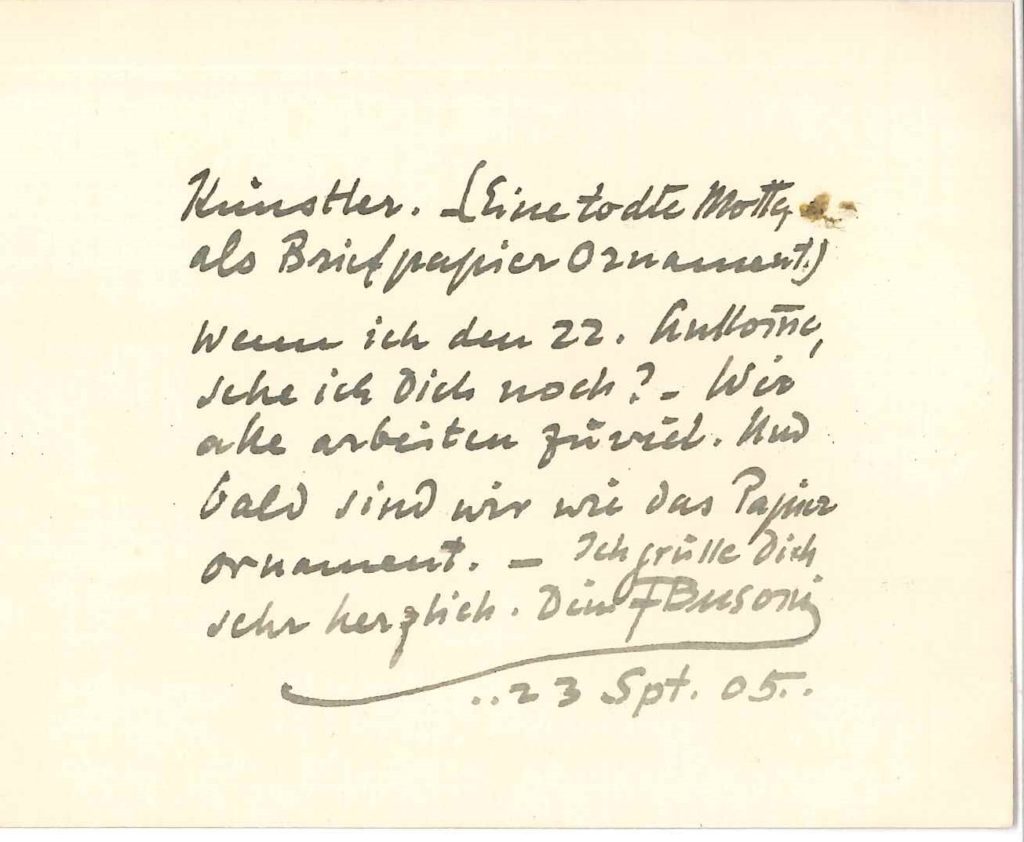 Künstler. – (Eine todte Motte,
als Briefpapier Ornament.)
Wenn ich den 22. ankom̅e,
sehe ich Dich noch? – Wir
alle arbeiten zuviel. Und
bald sind wir wie das Papier
ornament. – Ich grüsse Dich
sehr herzlich. Dein FBusoni
..23 Spt. 05..